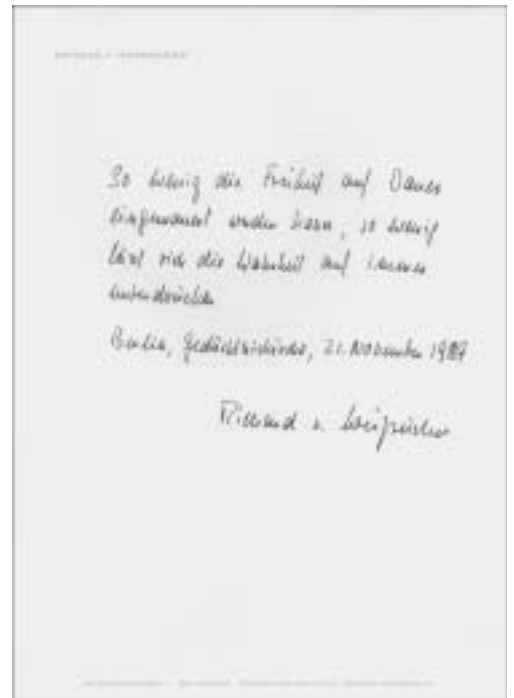 So wenig die Freiheit auf Dauer
eingemauert werden kann, so wenig
läßt sich die Wahrheit auf immer
unterdrücken
Berlin, Gedächtniskirche, 21. November 1989
Richard v. Weizsäcker